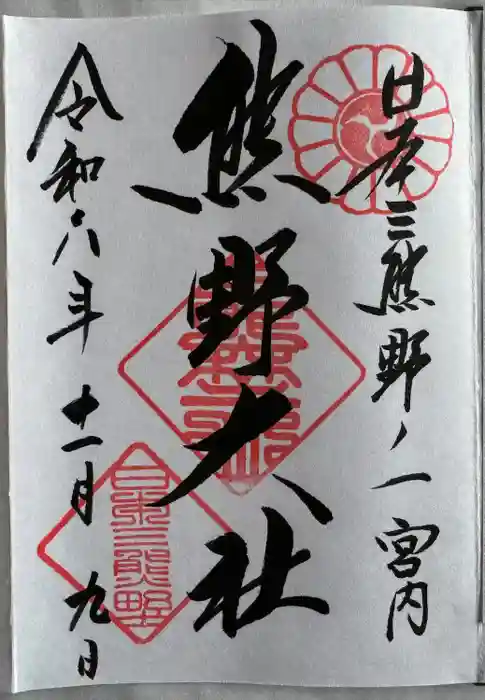 日本三熊野ノ一宮内
熊野大社
令和六年十一月九日
日本三熊野